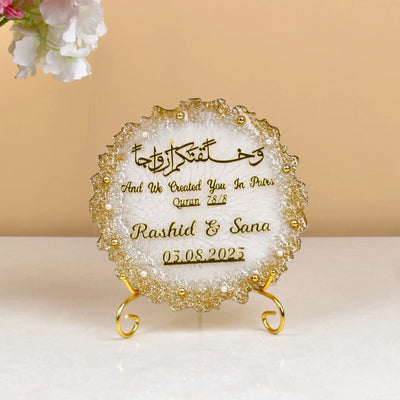 وخلقنكم ازواجاً
And We Created You In Pairs
Quran 78/8
Rashid & Sana
03.08.2023